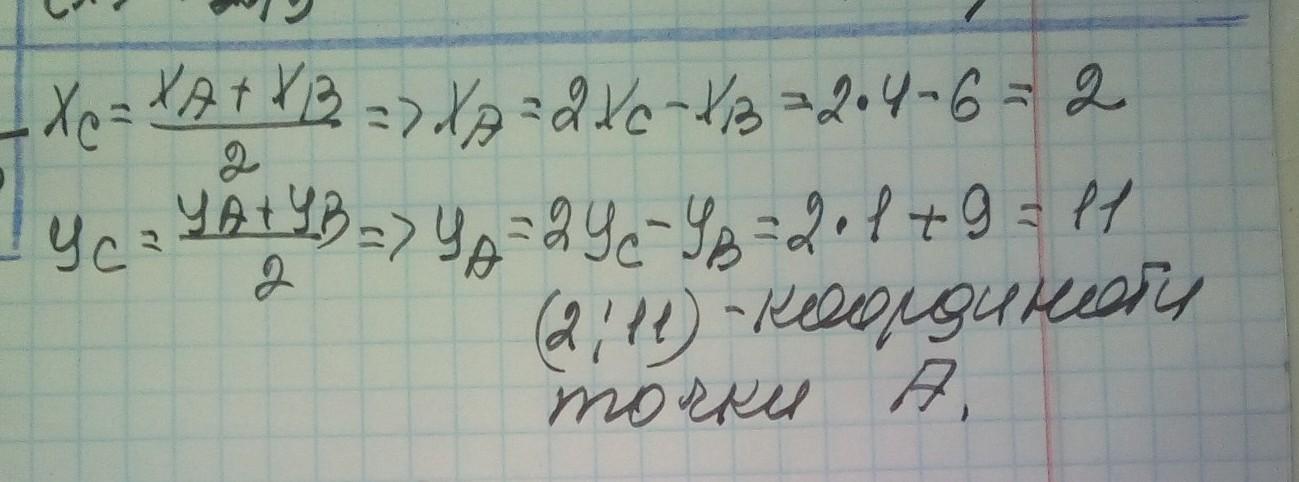 Xc = (XA + XB)/2 => XA = 2Xc - XB = 2·4 - 6 = 2
Yc = (YA + YB)/2 => YA = 2Yc - YB = 2·1 + 9 = 11
(2; 11) - координати
точки A.